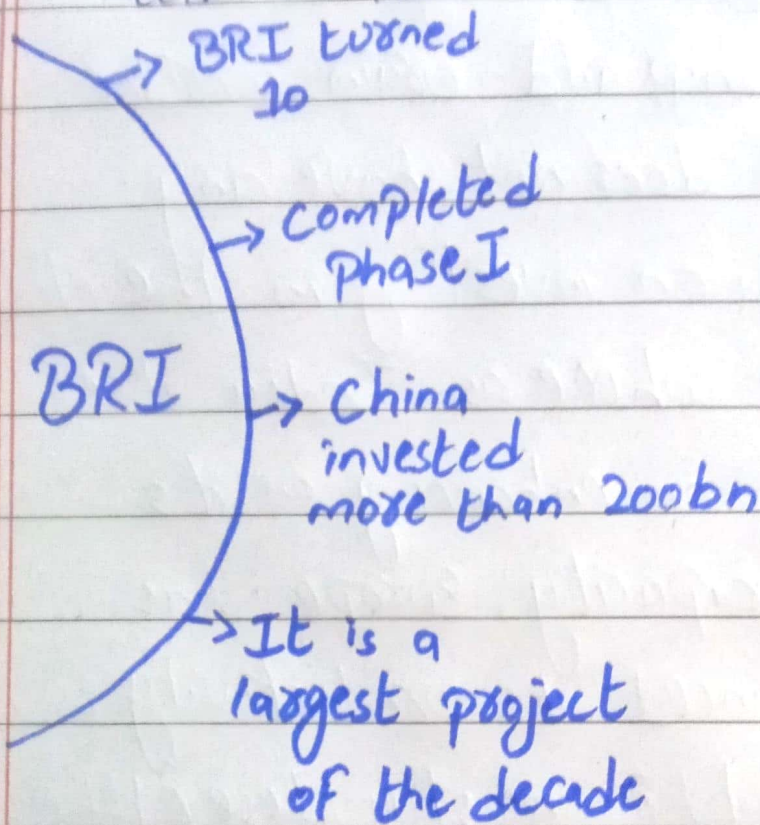 BRI turned
10
Completed
phase I
BRI
China
invested
more than 200bn
It is a
largest project
of the decade